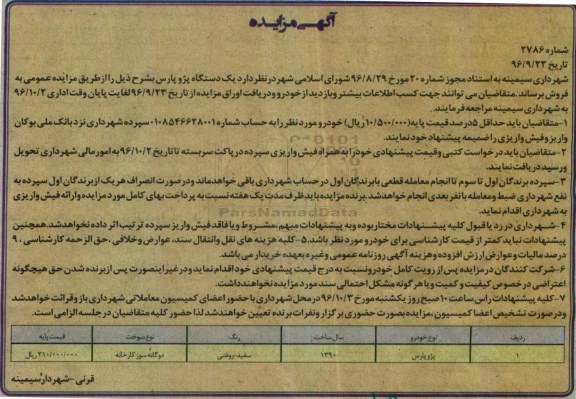 آگهی مزایده
شماره ۲۷۸۶
تاریخ ۹۶/۹/۲۳
شهرداری سیمینه به استناد مجوز شماره ۲۰ مورخ ۹۶/۸/۲۹ شورای اسلامی شهر در نظر دارد یک دستگاه پژو پارس بشرح ذیل را از طریق مزایده عمومی به
فروش برساند. متقاضیان می توانند جهت کسب اطلاعات بیشتر و بازدید از خودرو و دریافت اوراق مزایده از تاریخ ۹۶/۹/۲۳ لغایت پایان وقت اداری ۹۶/۱۰/۲
به شهرداری سیمینه مراجعه فرمایند.
۱-متقاضیان باید حداقل ۵ درصد قیمت پایه (۱۰/۵۰۰/۰۰۰ ریال) خودرو مورد نظر را به حساب شماره ۰۱۰۸۵۴۶۶۳۸۰۰۱ سپرده شهرداری نزد بانک ملی بوکان
واریز و فیش واریزی را ضمیمه پیشنهاد خود نمایند.
۲-متقاضیان باید درخواست کتبی و قیمت پیشنهادی خود را به همراه فیش واریزی سپرده در پاکت سربسته تا تاریخ ۹۶/۱۰/۲ به امور مالی شهرداری تحویل
و رسید دریافت نمایند.
۳-سپرده برندگان اول تا سوم تا انجام معامله قطعی با برندگان اول در حساب شهرداری باقی خواهد ماند و در صورت انصراف هر یک از برندگان اول سپرده به
نفع شهرداری ضبط و معامله با نفر بعدی انجام خواهد شد. برنده مزایده باید ظرف مدت یک هفته نسبت به پرداخت بهای کامل مورد مزایده و ارائه فیش واریزی
به شهرداری اقدام نماید.
۴-شهرداری در رد یا قبول کلیه پیشنهادات مختار بوده و به پیشنهادات مبهم، مشروط و یا فاقد فیش واریز سپرده ترتیب اثر داده نخواهد شد. همچنین
پیشنهادات نباید کمتر از قیمت کارشناسی برای خودرو مورد نظر باشد. ۵-کلیه هزینه های نقل و انتقال سند، عوارض و خلافی، حق الزحمه کارشناسی، ۹
درصد مالیات و عوارض ارزش افزوده و هزینه آگهی روزنامه عمومی و غیره بعهده خریدار می باشد.
۶-شرکت کنندگان در مزایده پس از رویت کامل خودرو نسبت به درج قیمت پیشنهادی خود اقدام نماید و در غیر اینصورت پس از برنده شدن حق هیچگونه
اعتراضی در خصوص کیفیت و کمیت و یا هر گونه مشکل احتمالی سند مورد مزایده نخواهند داشت.
۷-کلیه پیشنهادات راس ساعت ۱۰ صبح روز یکشنبه مورخ ۹۶/۱۰/۳ در محل شهرداری با حضور اعضای کمیسیون معاملاتی شهرداری باز و قرائت خواهد شد
و در صورت تشخیص اعضا کمیسیون، مزایده بصورت حضوری برگزار و نفرات برنده تعیین خواهند شد لذا حضور کلیه متقاضیان در جلسه الزامی است.
ردیف نوع خودرو سال ساخت رنگ نوع سوخت قیمت پایه
۱ پژو پارس ۱۳۹۰ سفید-روغنی دوگانه سوز کارخانه ۲۱۰/۰۰۰/۰۰۰ ریال
قرنی-شهردار سیمینه
ParsNamadData